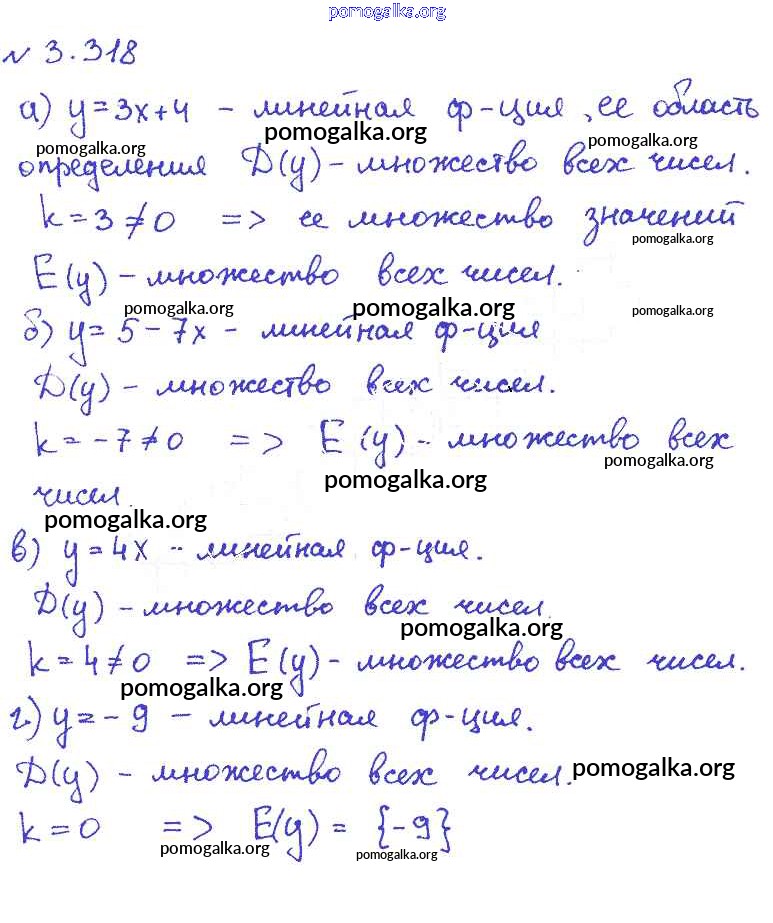 pomogalka.org
N 3.318
а) y=3x+4 - линейная ф-ция, ее область
pomogalka.org pomogalka.org pomogalka.org
определения D(y) - множество всех чисел.
k=3≠0 => ее множество значений
pomogalka.org
E(y) - множество всех чисел.
pomogalka.org pomogalka.org pomogalka.org
б) y=5-7x - линейная ф-ция
D(y) - множество всех чисел.
k=-7≠0 => E(y) - множество всех
pomogalka.org
pomogalka.org
чисел.
pomogalka.org
в) y=4x - линейная ф-ция.
D(y) - множество всех чисел.
pomogalka.org
k=4≠0 => E(y) - множество всех чисел.
pomogalka.org
г) y=-9 - линейная ф-ция.
D(y) - множество всех чисел. pomogalka.org
k=0 => E(y) = {-9}
pomogalka.org pomogalka.org